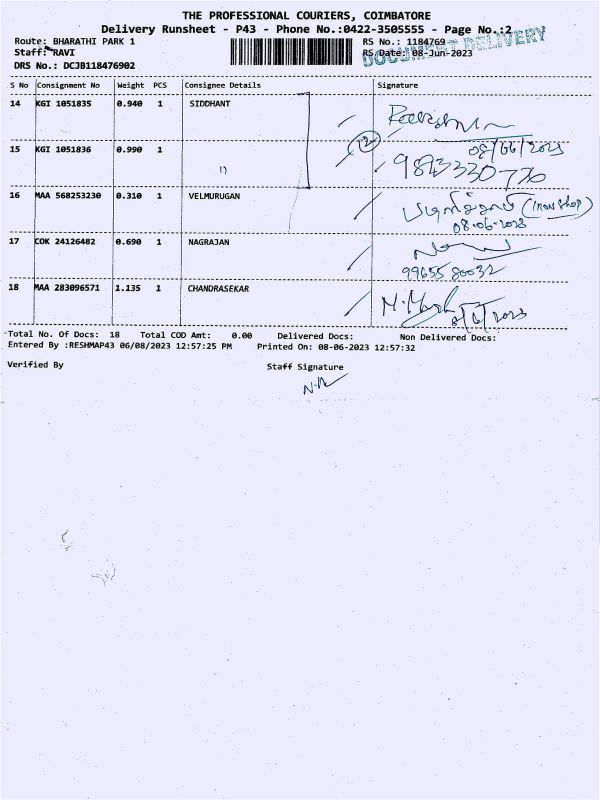 THE PROFESSIONAL COURIERS, COIMBATORE
Delivery Runsheet - P43 - Phone No.:0422-3505555 - Page No.:2
Route: BHARATHI PARK 1
RS No.: 1184769
DOCUMENT DELIVERY
Staff: RAVI
RS Date: 08-Jun-2023
DRS No.: DCJB118476902
S No Consignment No Weight PCS Consignee Details Signature
14 KGI 1051835 0.940 1 SIDDHANT
08/06/2023
15 KGI 1051836 0.990 1 11
2
9873330770
16 MAA 568253230 0.310 1 VELMURUGAN
(Iron Shop)
08-06-2023
17 COK 24126482 0.690 1 NAGRAJAN
99655 80032
18 MAA 283096571 1.135 1 CHANDRASEKAR
8/6/2023
Total No. Of Docs: 18 Total COD Amt: 0.00 Delivered Docs: Non Delivered Docs:
Entered By :RESHMAP43 06/08/2023 12:57:25 PM Printed On: 08-06-2023 12:57:32
Verified By Staff Signature